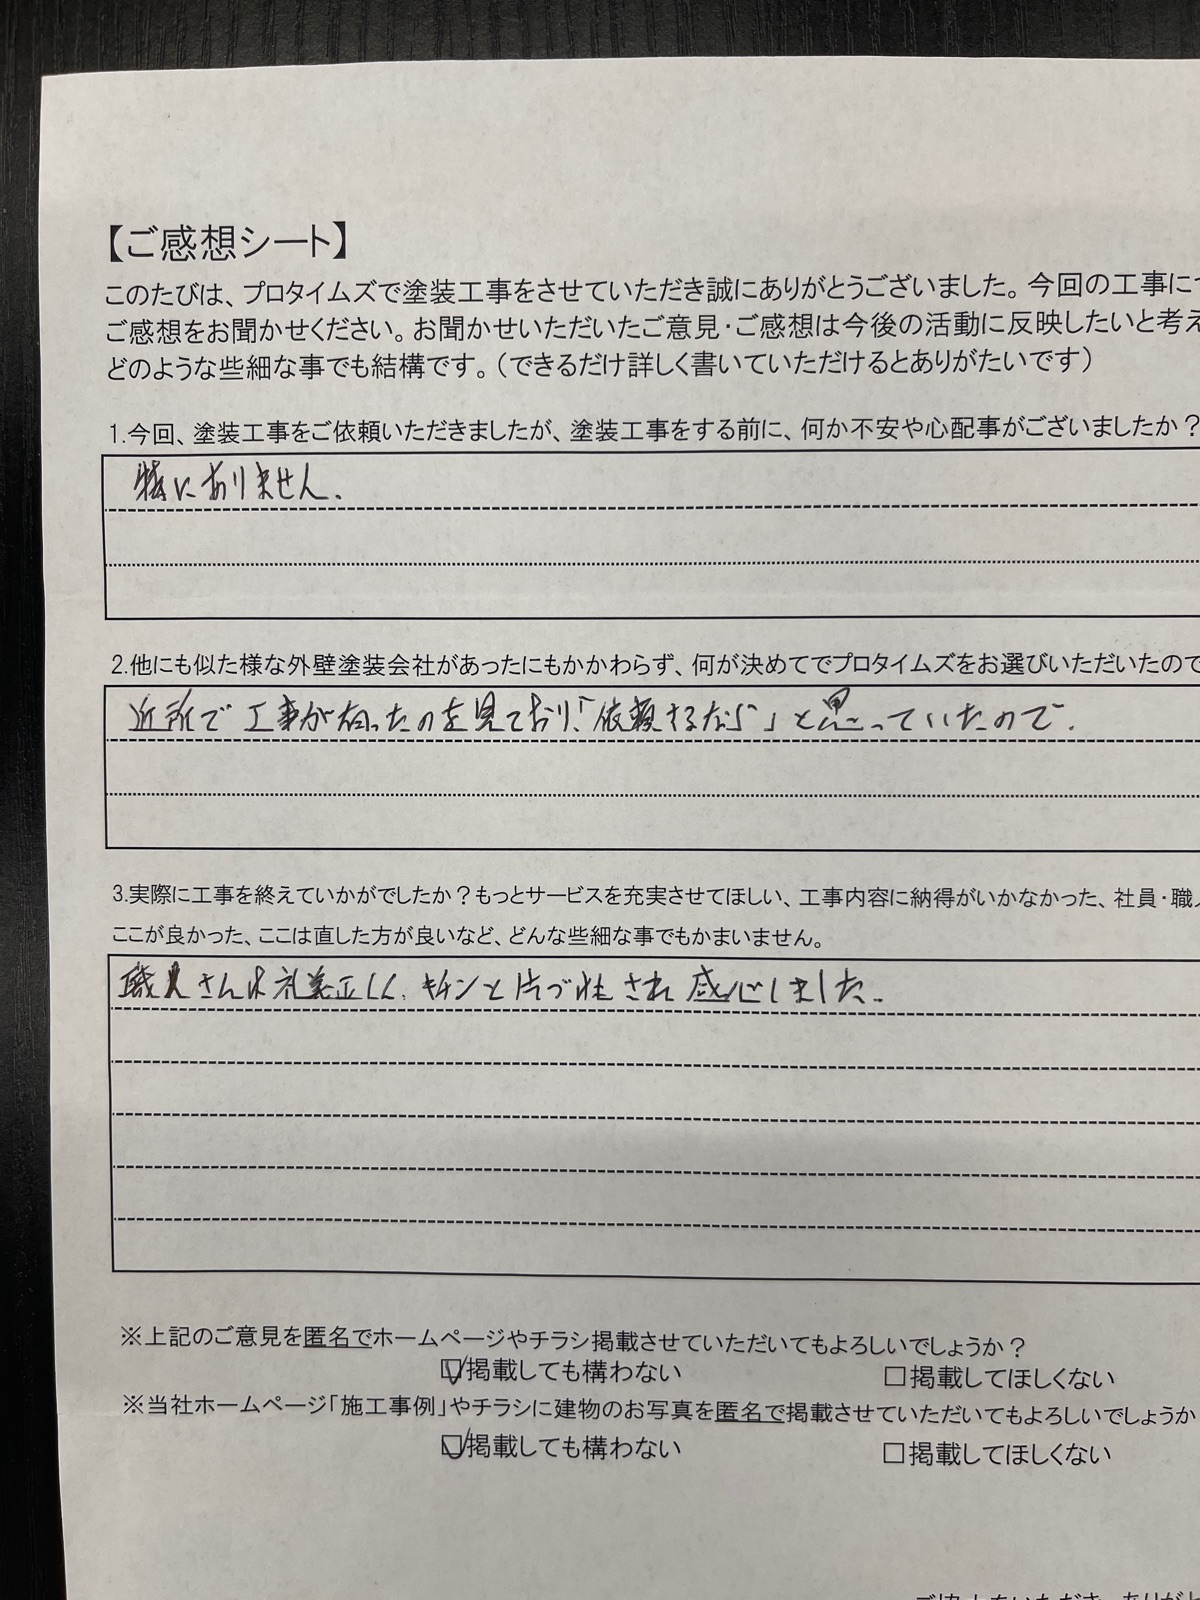 【ご感想シート】
このたびは、プロタイムズで塗装工事をさせていただき誠にありがとうございました。今回の工事につ
ご感想をお聞かせください。お聞かせいただいたご意見・ご感想は今後の活動に反映したいと考え
どのような些細な事でも結構です。（できるだけ詳しく書いていただけるとありがたいです）
1.今回、塗装工事をご依頼いただきましたが、塗装工事をする前に、何か不安や心配事がございましたか？
特にありません。
2.他にも似た様な外壁塗装会社があったにもかかわらず、何が決めてでプロタイムズをお選びいただいたので
近所で工事が在ったのを見ており、「依頼するなら」と思っていたので。
3.実際に工事を終えていかがでしたか？もっとサービスを充実させてほしい、工事内容に納得がいかなかった、社員・職人
ここが良かった、ここは直した方が良いなど、どんな些細な事でもかまいません。
職人さんは礼義正しく、キチンと片づけもされ感心しました。
※上記のご意見を匿名でホームページやチラシ掲載させていただいてもよろしいでしょうか？
☑掲載しても構わない □掲載してほしくない
※当社ホームページ「施工事例」やチラシに建物のお写真を匿名で掲載させていただいてもよろしいでしょうか
☑掲載しても構わない □掲載してほしくない